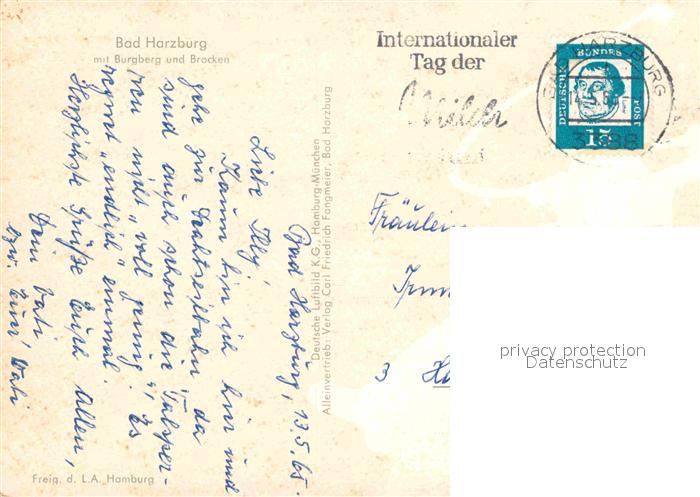 Bad Harzburg
mit Burgberg und Brocken
Internationaler
Tag der
Milch
DEUTSCHE
BUNDES
POST
15
BAD HARZBURG
3388
Bad Harzburg, 13.5.65.
Liebe Illy,
Kaum bin ich hier und
gehe zur Drahtseilbahn, da
sind auch schon die Talsper-
ren nicht „voll genug“. Es
regnet „endlich“ einmal.
Herzlichste Grüße Euch Allen,
Dein Vati
bzw. Euer Vati
Deutsche Luftbild K.G., Hamburg-München
Alleinvertrieb: Verlag Carl Friedrich Fangmeier, Bad Harzburg
Fräulein
3
Freig. d. L.A. Hamburg
privacy protection
Datenschutz